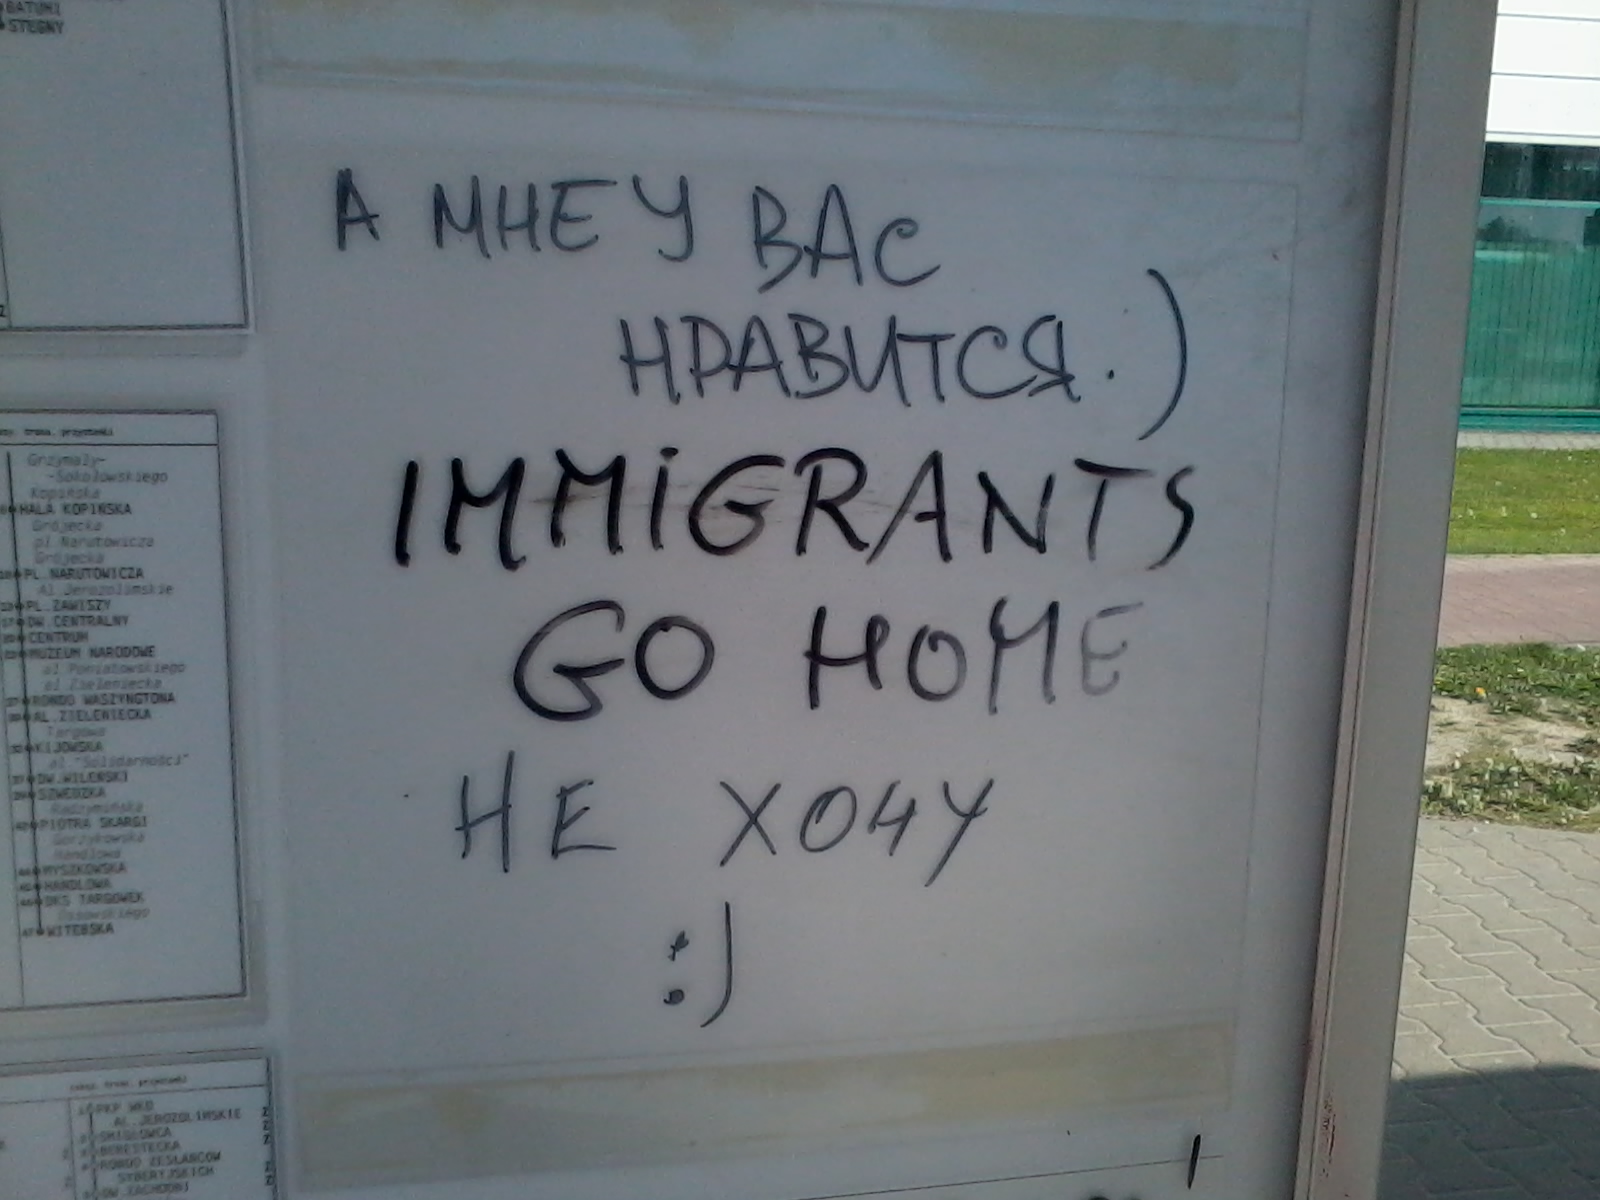 BATUMI
STEGNY
А МНЕ У ВАС
НРАВИТСЯ.)
IMMIGRANTS
GO HOME
НЕ ХОЧУ
:)
trasa, przystanki
Grzymały-
-Sokołowskiego
Kopińska
HALA KOPIŃSKA
Grójecka
pl. Narutowicza
Grójecka
PL. NARUTOWICZA
Al. Jerozolimskie
PL. ZAWISZY
DW. CENTRALNY
CENTRUM
MUZEUM NARODOWE
al. Poniatowskiego
al. Zieleniecka
RONDO WASZYNGTONA
AL. ZIELENIECKA
Targowa
KIJOWSKA
al. "Solidarności"
DW. WILEŃSKI
SZWEDZKA
Radzymińska
PIOTRA SKARGI
Gorzykowska
Handlowa
MYSZKOWSKA
HANDLOWA
OKS TARGÓWEK
Ossowskiego
WITEBSKA
trasa, przystanki
PKP WKD
AL. JEROZOLIMSKIE
ŚMIGŁOWCA
BERESTECKA
RONDO ZESŁAŃCÓW
SYBERYJSKICH
DW. ZACHODNI